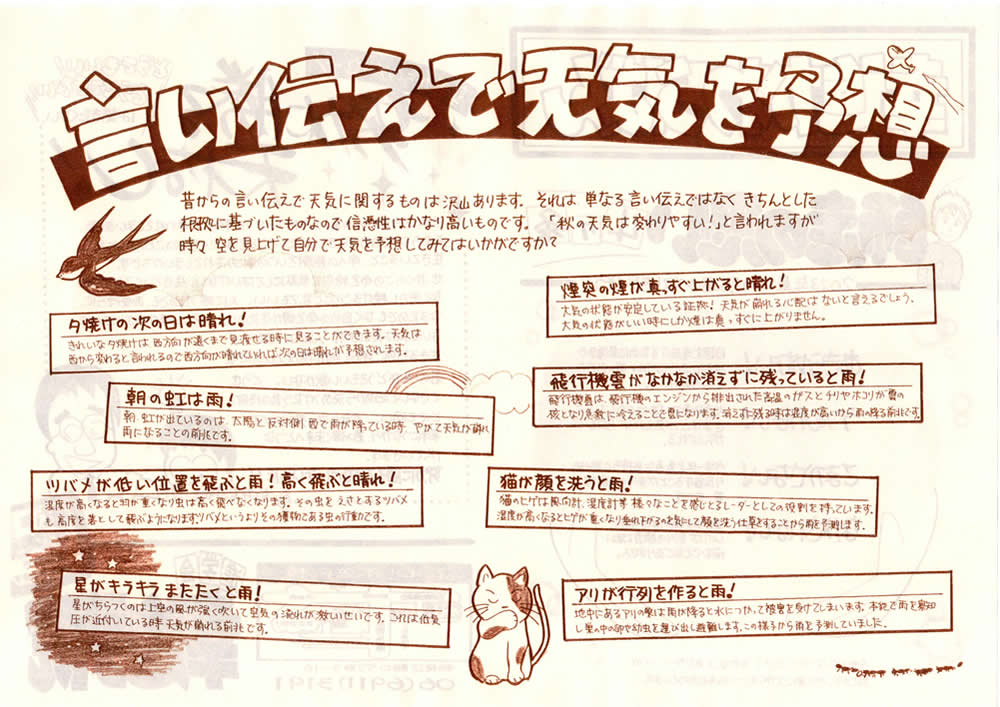 言い伝えで天気を予想
昔からの言い伝えで天気に関するものは沢山あります。それは単なる言い伝えではなくきちんとした
根拠に基づいたものなので信憑性はかなり高いものです。「秋の天気は変わりやすい！」と言われますが
時々空を見上げて自分で天気を予想してみてはいかがですか？
夕焼けの次の日は晴れ！
きれいな夕焼けは西方向が遠くまで見渡せる時に見ることができます。天気は
西から変わると言われるので西方向が晴れていれば次の日は晴れが予想されます。
朝の虹は雨！
朝、虹が出ているのは、太陽と反対側、西で雨が降っている時。やがて天気が崩れ
雨になることの前兆です。
ツバメが低い位置を飛ぶと雨！高く飛ぶと晴れ！
湿度が高くなると羽が重くなり虫は高く飛べなくなります。その虫をえさとするツバメ
も高度を落として飛ぶようになります。ツバメというよりその獲物である虫の行動です。
星がキラキラまたたくと雨！
星がちらつくのは上空の風が強く吹いて空気の流れが激しいせいです。これは低気
圧が近付いている時、天気が崩れる前兆です。
煙突の煙が真っすぐ上がると晴れ！
大気の状態が安定している証拠！天気が崩れる心配はないと言えるでしょう。
大気の状態がいい時にしか煙は真っすぐに上がりません。
飛行機雲がなかなか消えずに残っていると雨！
飛行機雲は、飛行機のエンジンから排出された高温のガスとチリやホコリが雲の
核となり急激に冷えることで雲になります。消えずに残る時は湿度が高いから雨の降る前兆です。
猫が顔を洗うと雨！
猫のヒゲは風向計、湿度計等様々なことを感じとるレーダーとしての役割を持っています。
湿度が高くなるとヒゲが重くなり垂れ下がるのを気にして顔を洗う仕草をすることから雨を予測します。
アリが行列を作ると雨！
地中にあるアリの巣は雨が降ると水につかって被害を受けてしまいます。本能で雨を察知
し巣の中の卵や幼虫を運び出し避難します。この様子から雨を予測していました。